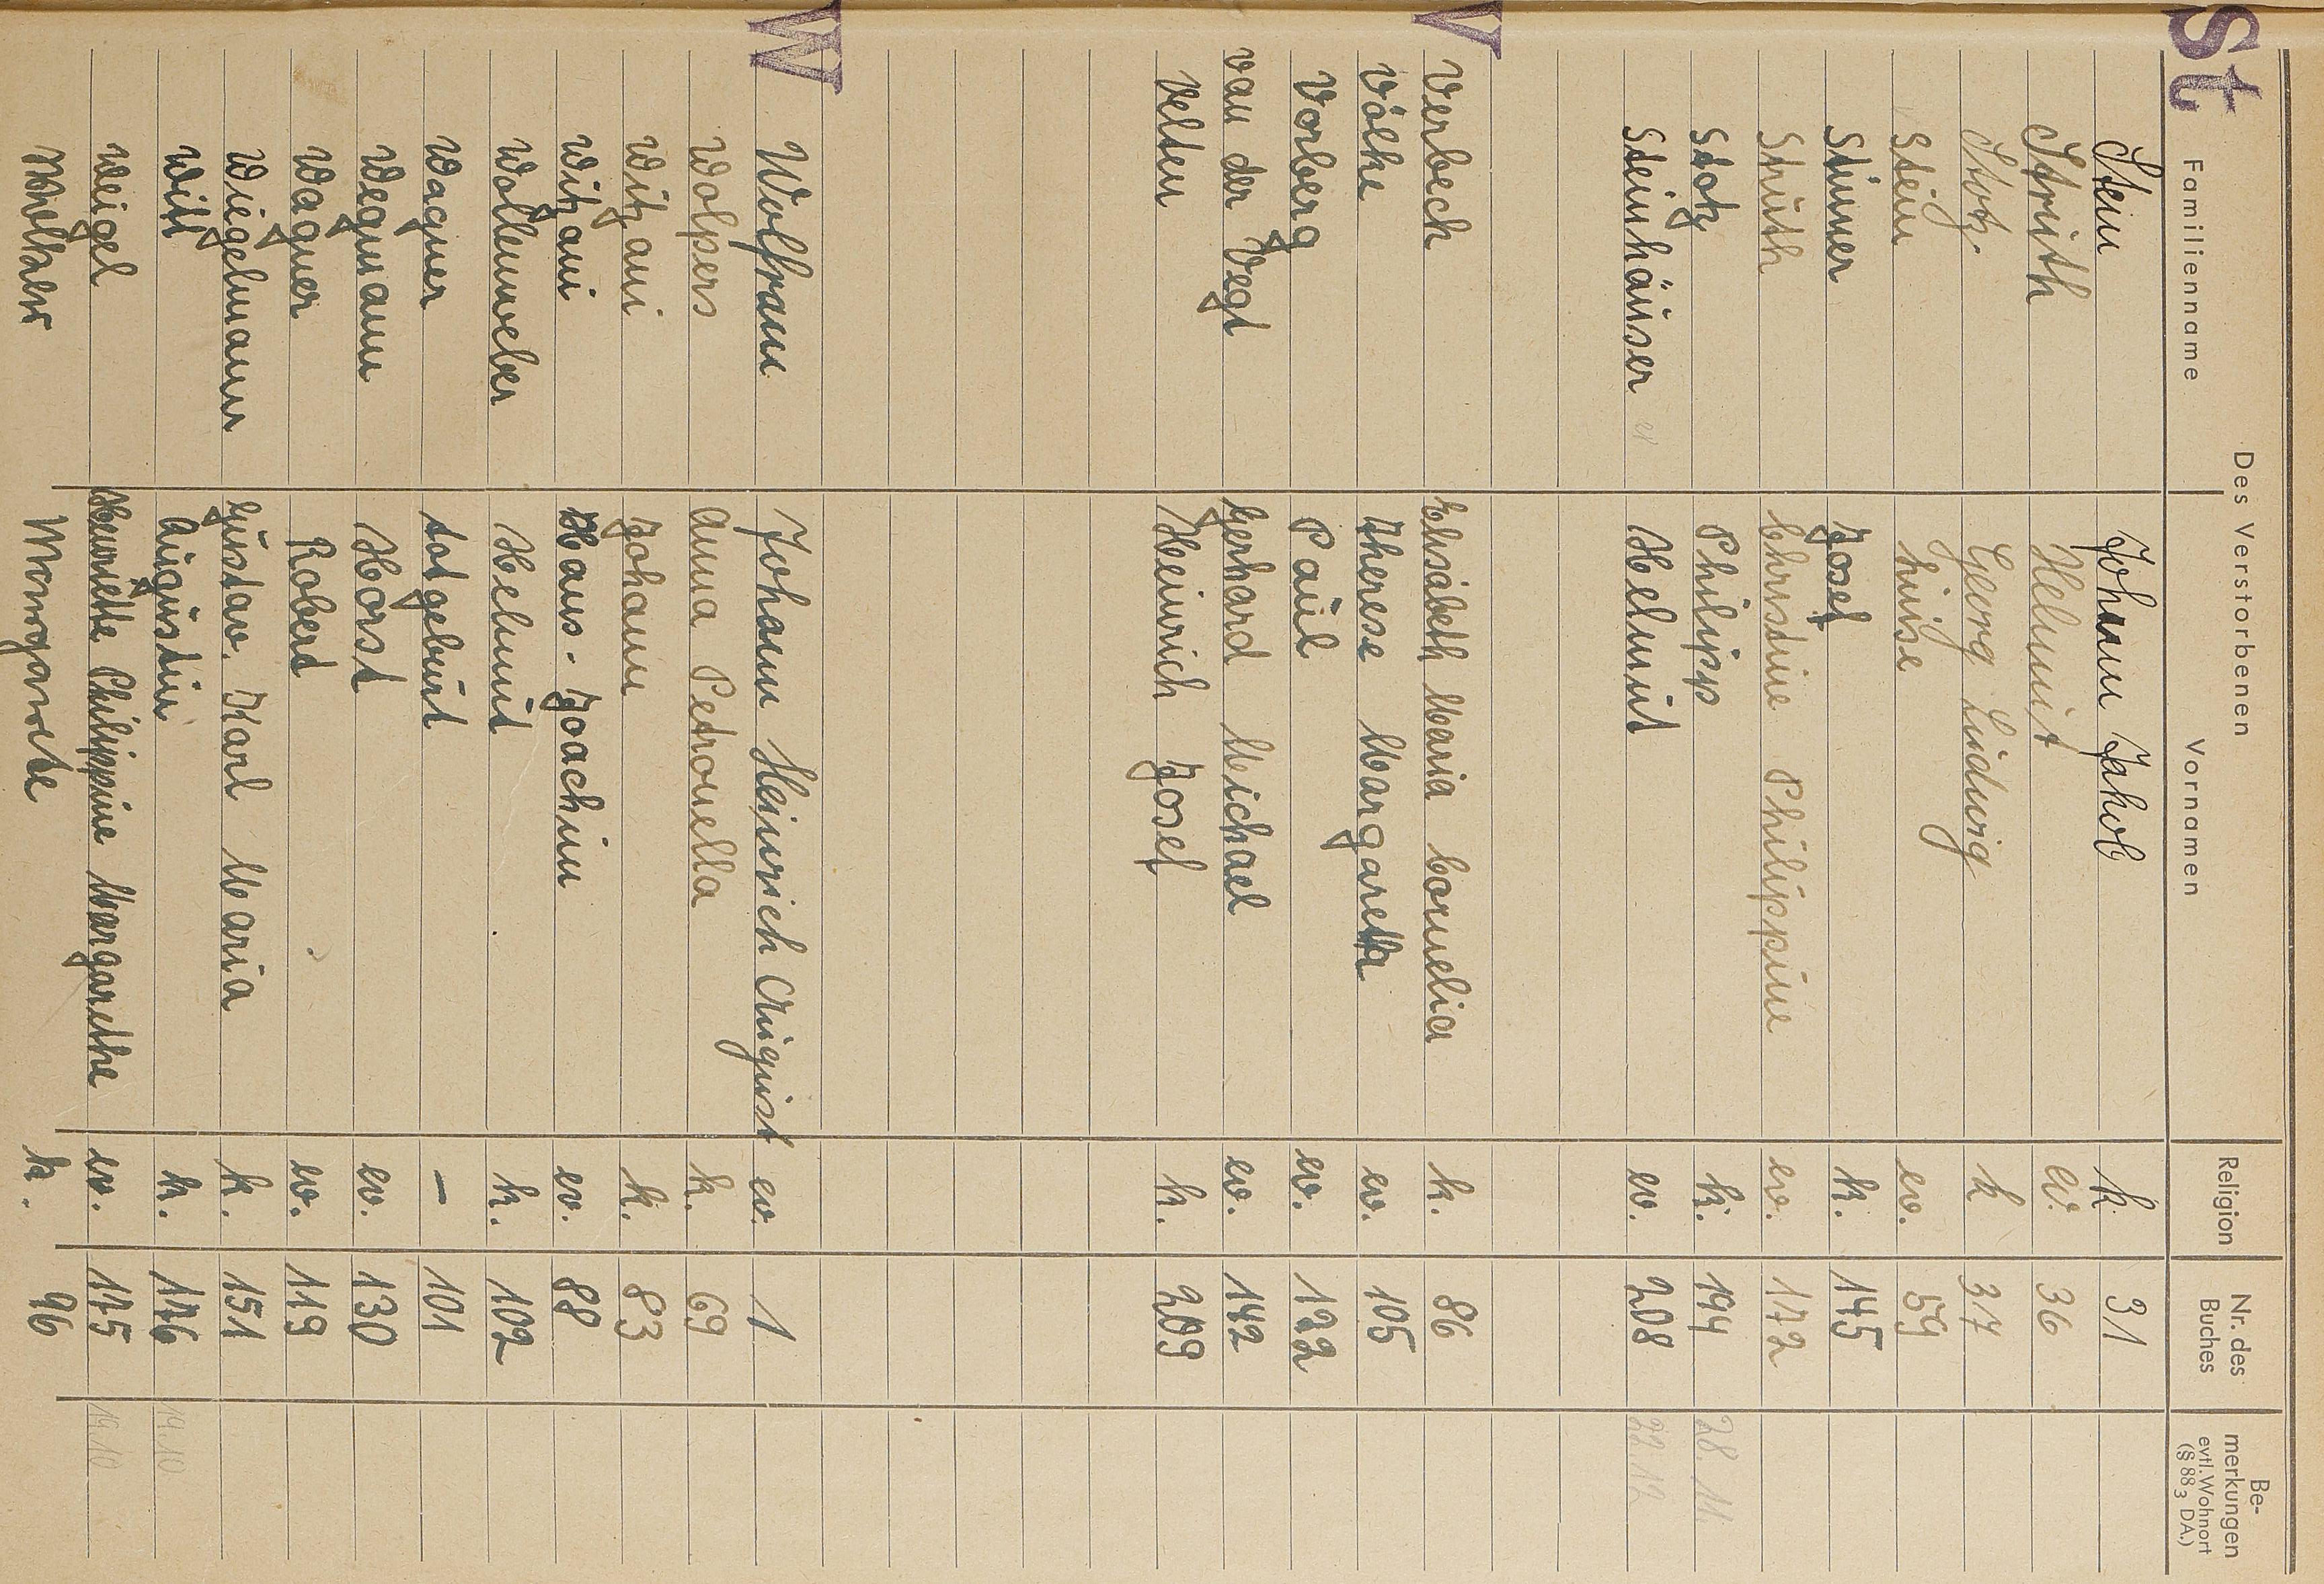 St
Des Verstorbenen
Familienname Vornamen Religion Nr. des Buches Be-merkungen evtl. Wohnort (§ 88 3 DA.)
Stein Johann Jakob k 31
Struth Helmut ev. 36
Stotz Georg Ludwig k 37
Stein Luise ev. 59
Stürner Josef k. 145
Struth Christine Philippine ev. 172
Stotz Philipp k. 194 28.11.
Steinhäuser Helmut ev. 208 22.12
V
Verbeck Elisabeth Maria Cornelia k. 86
Völke Therese Margareth ev. 105
Vorberg Paul ev. 122
van der Vegt Gerhard Michael ev. 142
Velten Heinrich Josef k. 209
W
Wolfram Johann Heinrich August ev. 1
Wolpers Anna Petronella k. 69
Witzani Johann k. 83
Witzani Hans-Joachim ev. 88
Wollenweber Helmut k. 102
Wagner totgeburt – 101
Wegmann Horst ev. 130
Wagner Robert ev. 119
Wiegelmann Gustav Karl Maria k. 151
Witt Augustin k. 176 19.10
Weigel Henriette Philippine Margarethe ev. 175 19.10
Wolter Margarete k. 96